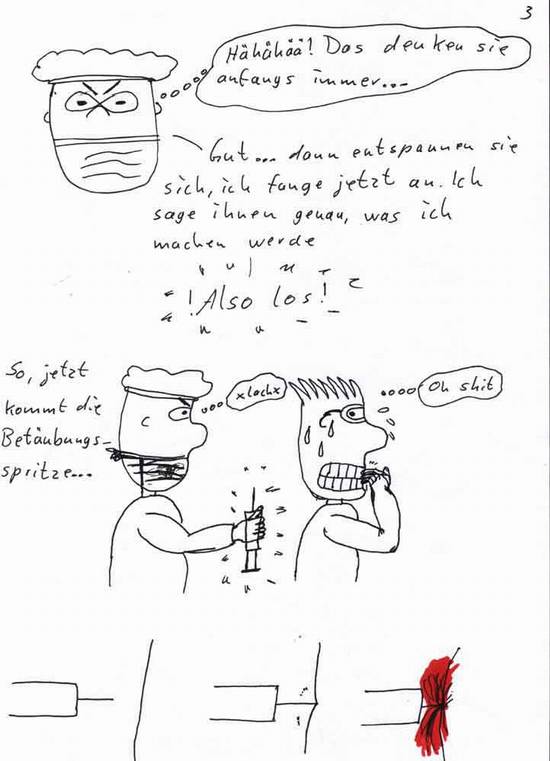 3
Hähähää! Das denken sie
anfangs immer...
Gut... dann entspannen sie
sich, ich fange jetzt an. Ich
sage ihnen genau, was ich
machen werde
! Also los!
So, jetzt
kommt die
Betäubungs-
spritze...
xlachx
Oh shit